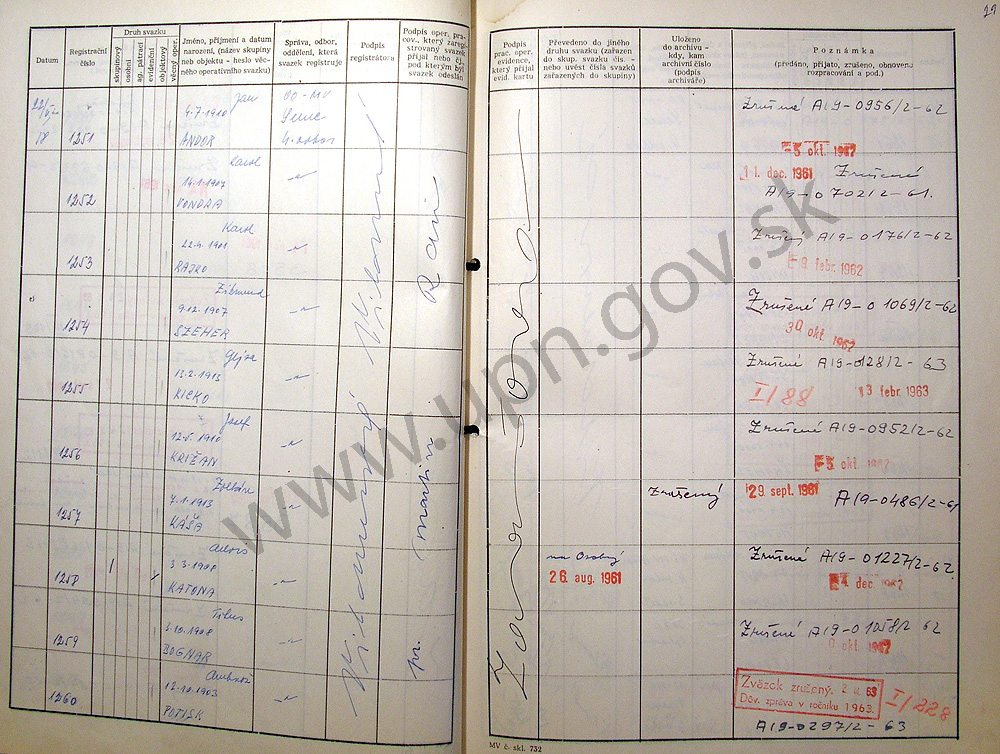 29
Datum
Registrační
číslo
Druh svazku
skupinový
osobní
ag. pátrací
evidenční
objektový
věcný oper.
Jméno, příjmení a datum
narození, (název skupiny
neb objektu - heslo věc-
ného operativního svazku)
Správa, odbor,
oddělení, která
svazek registruje
Podpis
registrátora
Podpis oper. pra-
cov., který zareg-
istrovaný svazek
přijal nebo čj.,
pod kterým byl
svazek odeslán
Podpis
prac. oper.
evidence,
který přijal
evid. kartu
Převedeno do jiného
druhu svazku (zařazen
do skup. svazku čís. -
nebo uvést čísla svazků
zařazených do skupiny)
Uloženo
do archivu -
kdy, kam
archivní číslo
(podpis
archiváře)
Poznámka
(předáno, přijato, zrušeno, obnoveno
rozpracování a pod.)
1251
Jan
4.7.1910
ANDOR
Zrušené A19-0956/2-62
5 okt. 1962
1252
Karol
14.1.1907
VONDRA
11. dec. 1961 Zrušené
A19-0702/2-61.
1253
Karol
22.4.1901
RAJKO
Zrušený A19-0176/2-62
9 febr. 1962
1254
Žibmund
9.12.1907
SZEHER
Zrušené A19-01069/2-62
30 okt. 1962
1255
13.2.1913
KICKO
Zrušené A19-0128/2-63
I/88 13 febr. 1963
1256
Jozef
12.5.1910
KRIŽAN
Zrušené A19-0952/2-62
5 okt. 1962
1257
Zoltán
7.1.1913
KÁŠA
Zrušený
29. sept. 1961
A19-0486/2-61
1258
Alois
3.3.1908
KATONA
na Osobný
26. aug. 1961
Zrušené A19-01227/2-62
4. dec. 1962
1259
Titus
3.10.1908
BOGNAR
Zrušené A19-01058/2 62
okt. 1962
1260
12.10.1903
POTISK
Zväzok zrušený. 2 II. 63
Dôv. zpráva v ročníku 1963.
I/228
A19-0297/2-63
MV č. skl. 732
www.upn.gov.sk